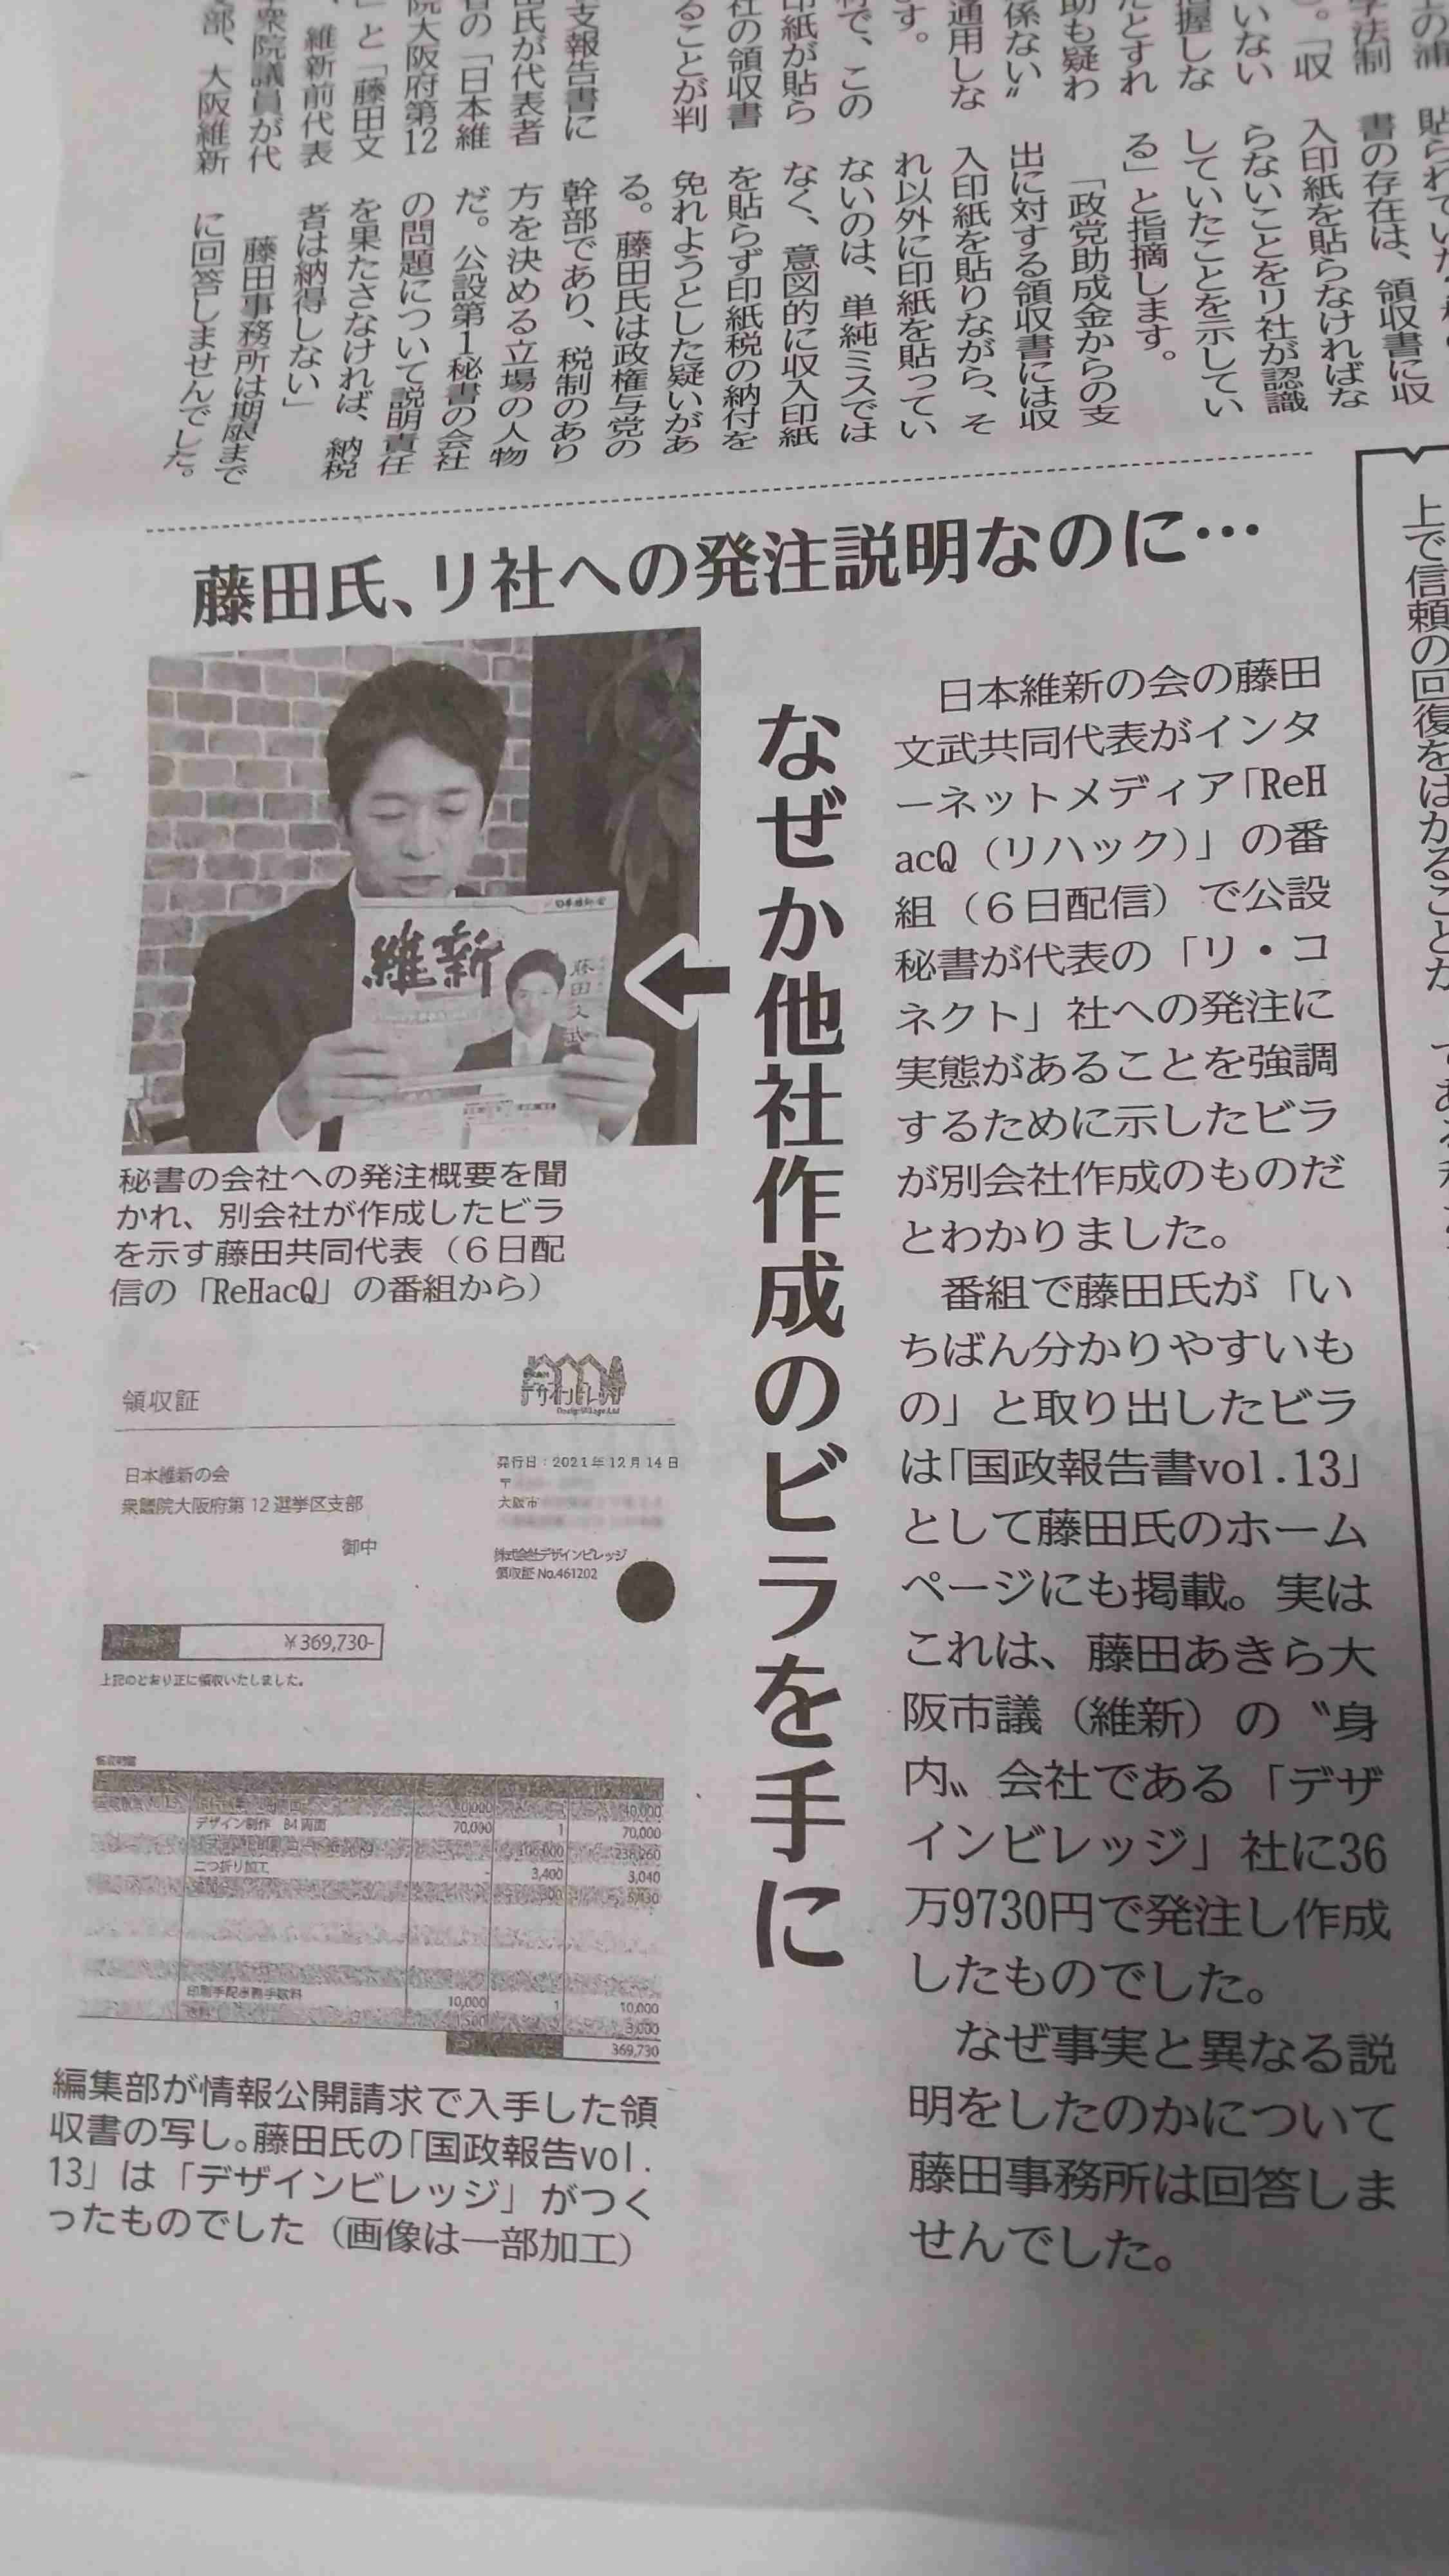 入印紙を貼らなければな
らないことをリ社が認識
していたことを示してい
る」と指摘します。
「政党助成金からの支
出に対する領収書には収
入印紙を貼りながら、そ
れ以外に印紙を貼ってい
ないのは、単純ミスでは
なく、意図的に収入印紙
を貼らず印紙税の納付を
免れようとした疑いがあ
る。藤田氏は政権与党の
幹部であり、税制のあり
方を決める立場の人物
だ。公設第1秘書の会社
の問題について説明責任
を果たさなければ、納税
者は納得しない」
藤田事務所は期限まで
に回答しませんでした。
藤田氏、リ社への発注説明なのに…
なぜか他社作成のビラを手に
日本維新の会の藤田
文武共同代表がインタ
ーネットメディア「ReH
acQ（リハック）」の番
組（６日配信）で公設
秘書が代表の「リ・コ
ネクト」社への発注に
実態があることを強調
するために示したビラ
が別会社作成のものだ
とわかりました。
番組で藤田氏が「い
ちばん分かりやすいも
の」と取り出したビラ
は「国政報告書vol.13」
として藤田氏のホーム
ページにも掲載。実は
これは、藤田あきら大
阪市議（維新）の〝身
内〟会社である「デザ
インビレッジ」社に36
万9730円で発注し作成
したものでした。
なぜ事実と異なる説
明をしたのかについて
藤田事務所は回答しま
せんでした。
維新
藤田文武
秘書の会社への発注概要を聞
かれ、別会社が作成したビラ
を示す藤田共同代表（６日配
信の「ReHacQ」の番組から）
領収証
デザインビレッジ
日本維新の会
衆議院大阪府第12選挙区支部
御中
発行日：2021年12月14日
〒
大阪市
株式会社デザインビレッジ
領収証 No.461202
￥369,730-
上記のとおり正に領収いたしました。
デザイン制作 B4両面 70,000 1 70,000
二つ折り加工 - 3,400 3,040
印刷手配事務手数料 10,000 1 10,000
3,000
369,730
編集部が情報公開請求で入手した領
収書の写し。藤田氏の「国政報告vol.
13」は「デザインビレッジ」がつく
ったものでした（画像は一部加工）